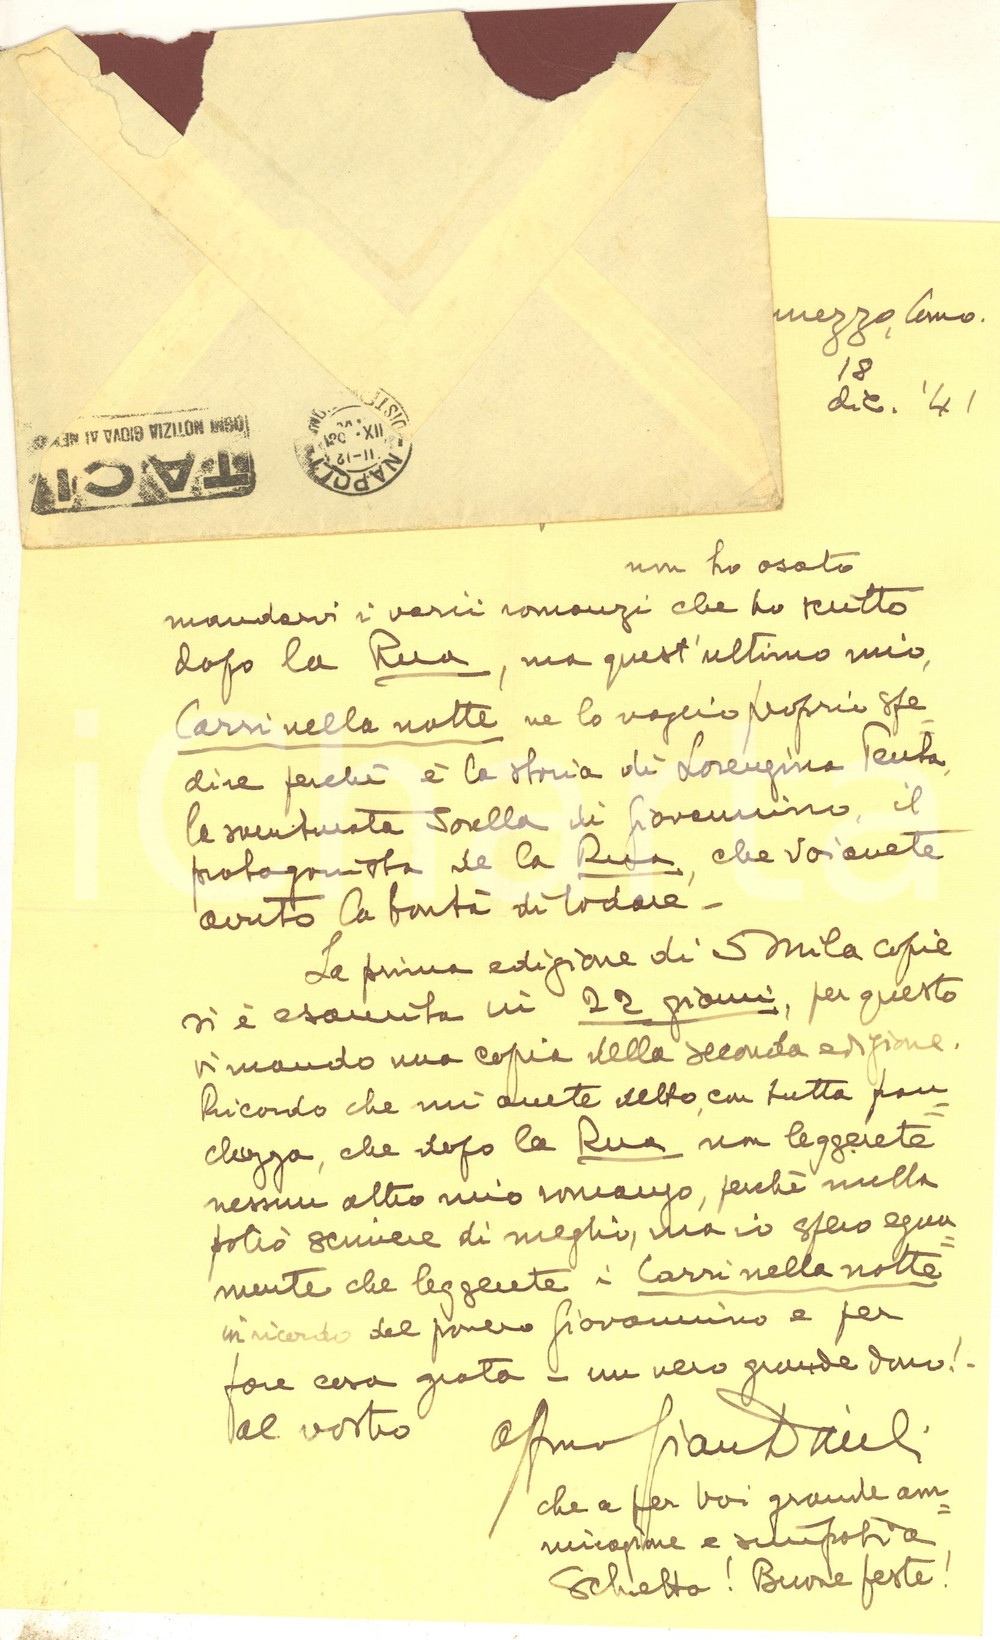 mezzo, Como.
18
dic. '41
non ho osato
mandarvi i varii romanzi che ho scritto
dopo la Rua, ma quest'ultimo mio,
Carri nella notte ve lo voglio proprio spe=
dire perchè è la storia di Lorenzina Penta,
la sventurata sorella di Giovannino, il
protagonista de la Rua, che voi avete
avuto la bontà di lodare –
La prima edizione di 5 mila copie
si è esaurita in 22 giorni, per questo
vi mando una copia della seconda edizione.
Ricordo che mi avete detto, con tutta fran=
chezza, che dopo la Rua non leggerete
nessun altro mio romanzo, perchè nulla
potrò scrivere di meglio, ma io spero egua=
mente che leggerete i Carri nella notte
in ricordo del povero Giovannino e per
fare cosa grata – un vero grande dono! –
al vostro
affmo Gian Dàuli
che a per Voi grande am=
mirazione e simpatia
Schietta! Buone feste!
TACI
OGNI NOTIZIA GIOVA AL NEMICO
NAPOLI
11-12
XII
iCharta